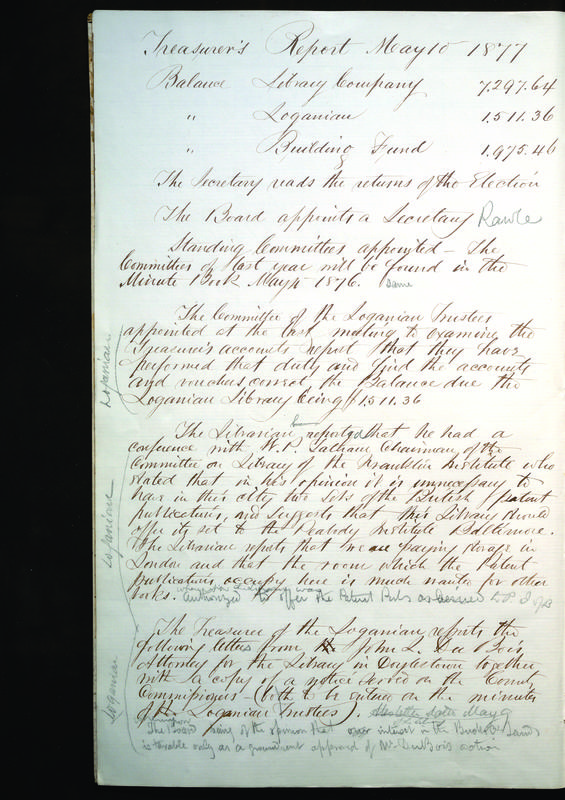 Treasurer's Report May 10 1877
Balance Library Company 7,297.64
" Loganian 1.511.36
" Building Fund 1.975.46
The Secretary reads the returns of the Election
The Board appoints a Secretary Rawle
Standing Committees appointed – The
Committees of last year will be found in the
Minute Book May 4 1876. Same
The Committee of the Loganian Trustees
appointed at the last meeting to examine the
Treasurer's accounts report that they have
performed that duty and find the accounts
and vouchers correct, the Balance due the
Loganian Library being $1511.36
Loganian
The Librarian reported that he had a
conference with W. P. Chairman of the
Committee on Library of the Franklin Institute who
stated that in his opinion it is unnecessary to
have in this city two sets of the British patent
publications, and suggests that this Library should
offer its set to the Peabody Institute Baltimore.
The Librarian reports that we are paying storage in
London and that the room which the Patent
publications occupy here is much wanted for other
works.
authorized to offer the Patent Pubs as
Loganian
The Treasurer of the Loganian reports the
following letters from John L. Du Bois
Attorney for the Library in Doylestown together
with a copy of a notice served on the County
Commissioners – (both to be entered on the minutes
of the Loganian Trustees). May 9
The Board being of the opinion that our interest in the Bucks Co. Lands
is taxable only as a groundrent approved of Mr. DuBois action
Loganian